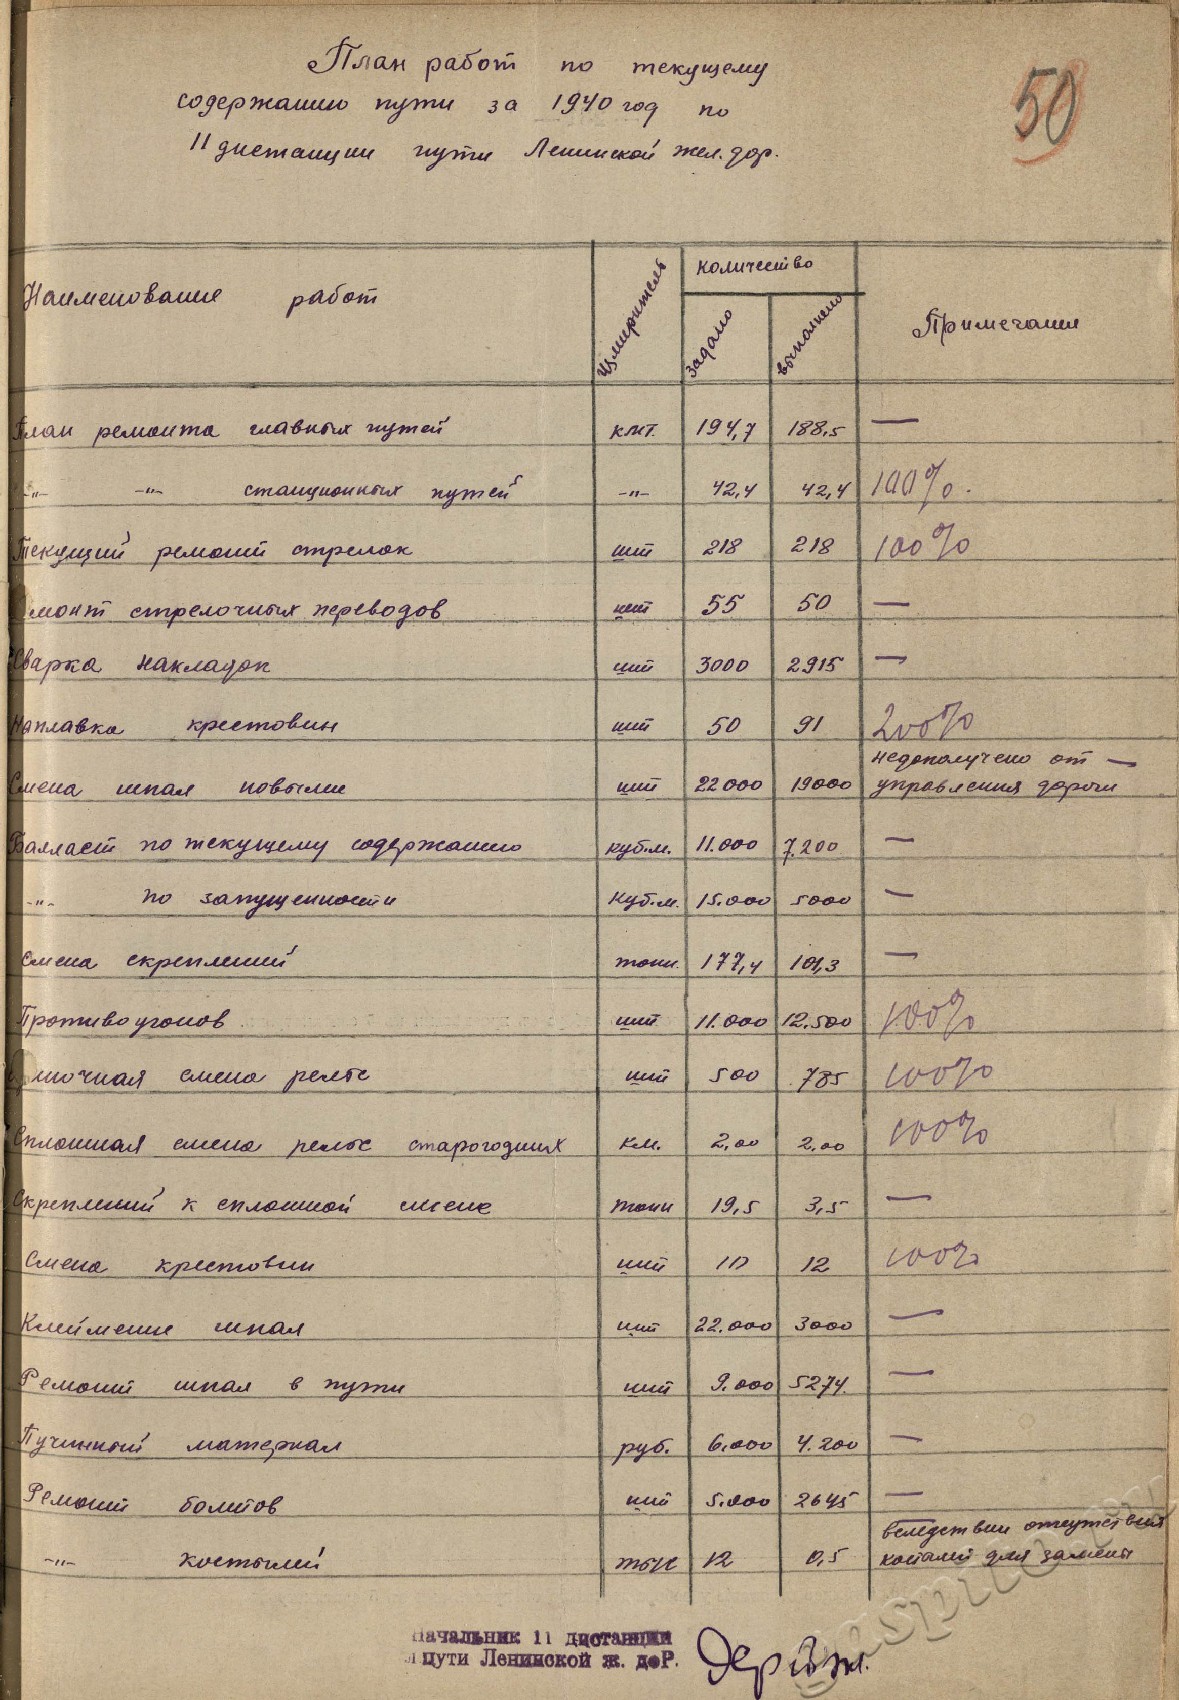 План работ по текущему
содержанию пути за 1940 год по
11 дистанции пути Ленинской жел. дор.
50
Наименование работ Измеритель Количество Примечания
задано выполнено
План ремонта главных путей клт. 194,7 188,5 —
-"- -"- станционных путей -"- 42,4 42,4 100%.
Текущий ремонт стрелок шт 218 218 100%
емонт стрелочных переводов шт 55 50 —
Сварка накладок шт 3000 2915 —
Наплавка крестовин шт 50 91 200%
Смена шпал новыми шт 22000 19000 недополучено от —
управления дороги
Балласт по текущему содержанию куб.м. 11.000 7.200 —
-"- по запущенности куб.м. 15.000 5000 —
Смена скреплений тонн. 177,4 101,3 —
Противоугонов шт 11.000 12.500 100%
иночная смена рельс шт 500 785 100%
Сплошная смена рельс старогодних км. 2,00 2,00 100%
Скреплений к сплошной смене тонн 19,5 3,5 —
Смена крестовин шт 10 12 100%
Клеймение шпал шт 22.000 3000 —
Ремонт шпал в пути шт 9.000 5274. —
Пучинный материал руб. 6.000 4.200 —
Ремонт болтов шт 5.000 2645 —
-"- костылей тыс 12 0,5 Вследствии отсутствия
костылей для замены
Начальник 11 дистанции
пути Ленинской ж. доР.
gaspito.ru